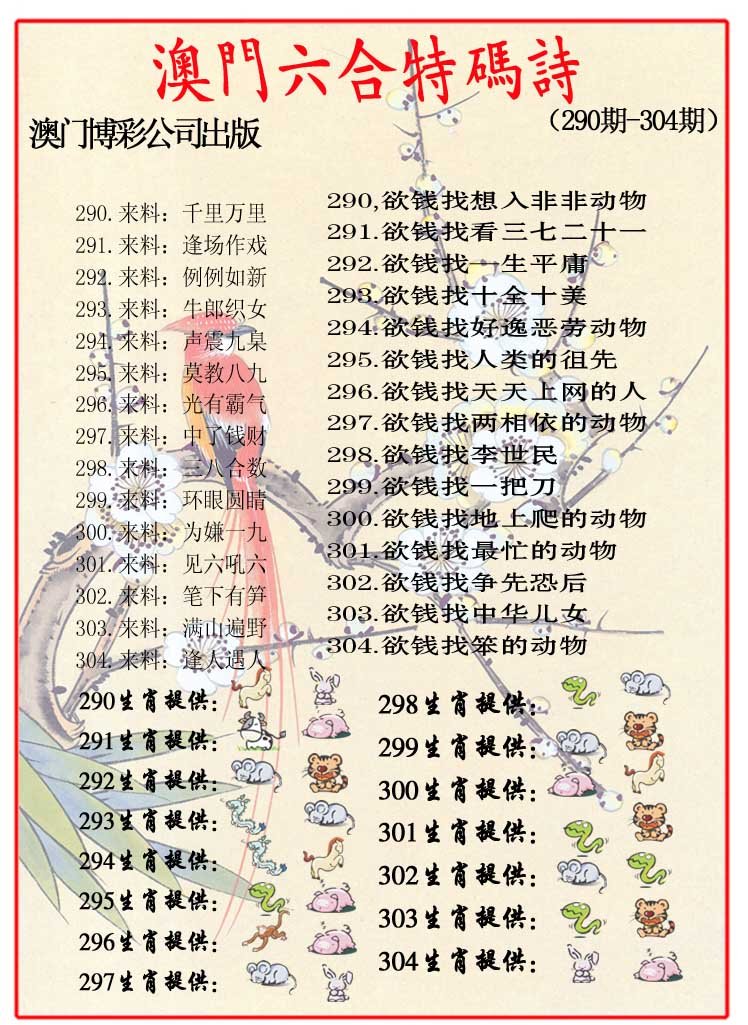 澳門六合特碼詩
（290期-304期）
澳门博彩公司出版
290.来料：千里万里
291.来料：逢场作戏
292.来料：例例如新
293.来料：牛郎织女
294.来料：声震九臬
295.来料：莫教八九
296.来料：光有霸气
297.来料：中了钱财
298.来料：三八合数
299.来料：环眼圆睛
300.来料：为嫌一九
301.来料：见六吼六
302.来料：笔下有笋
303.来料：满山遍野
304.来料：逢人遇人
290,欲钱找想入非非动物
291.欲钱找看三七二十一
292.欲钱找一生平庸
293.欲钱找十全十美
294.欲钱找好逸恶劳动物
295.欲钱找人类的祖先
296.欲钱找天天上网的人
297.欲钱找两相依的动物
298.欲钱找李世民
299.欲钱找一把刀
300.欲钱找地上爬的动物
301.欲钱找最忙的动物
302.欲钱找争先恐后
303.欲钱找中华儿女
304.欲钱找笨的动物
290生肖提供：
291生肖提供：
292生肖提供：
293生肖提供：
294生肖提供：
295生肖提供：
296生肖提供：
297生肖提供：
298生肖提供：
299生肖提供：
300生肖提供：
301生肖提供：
302生肖提供：
303生肖提供：
304生肖提供：